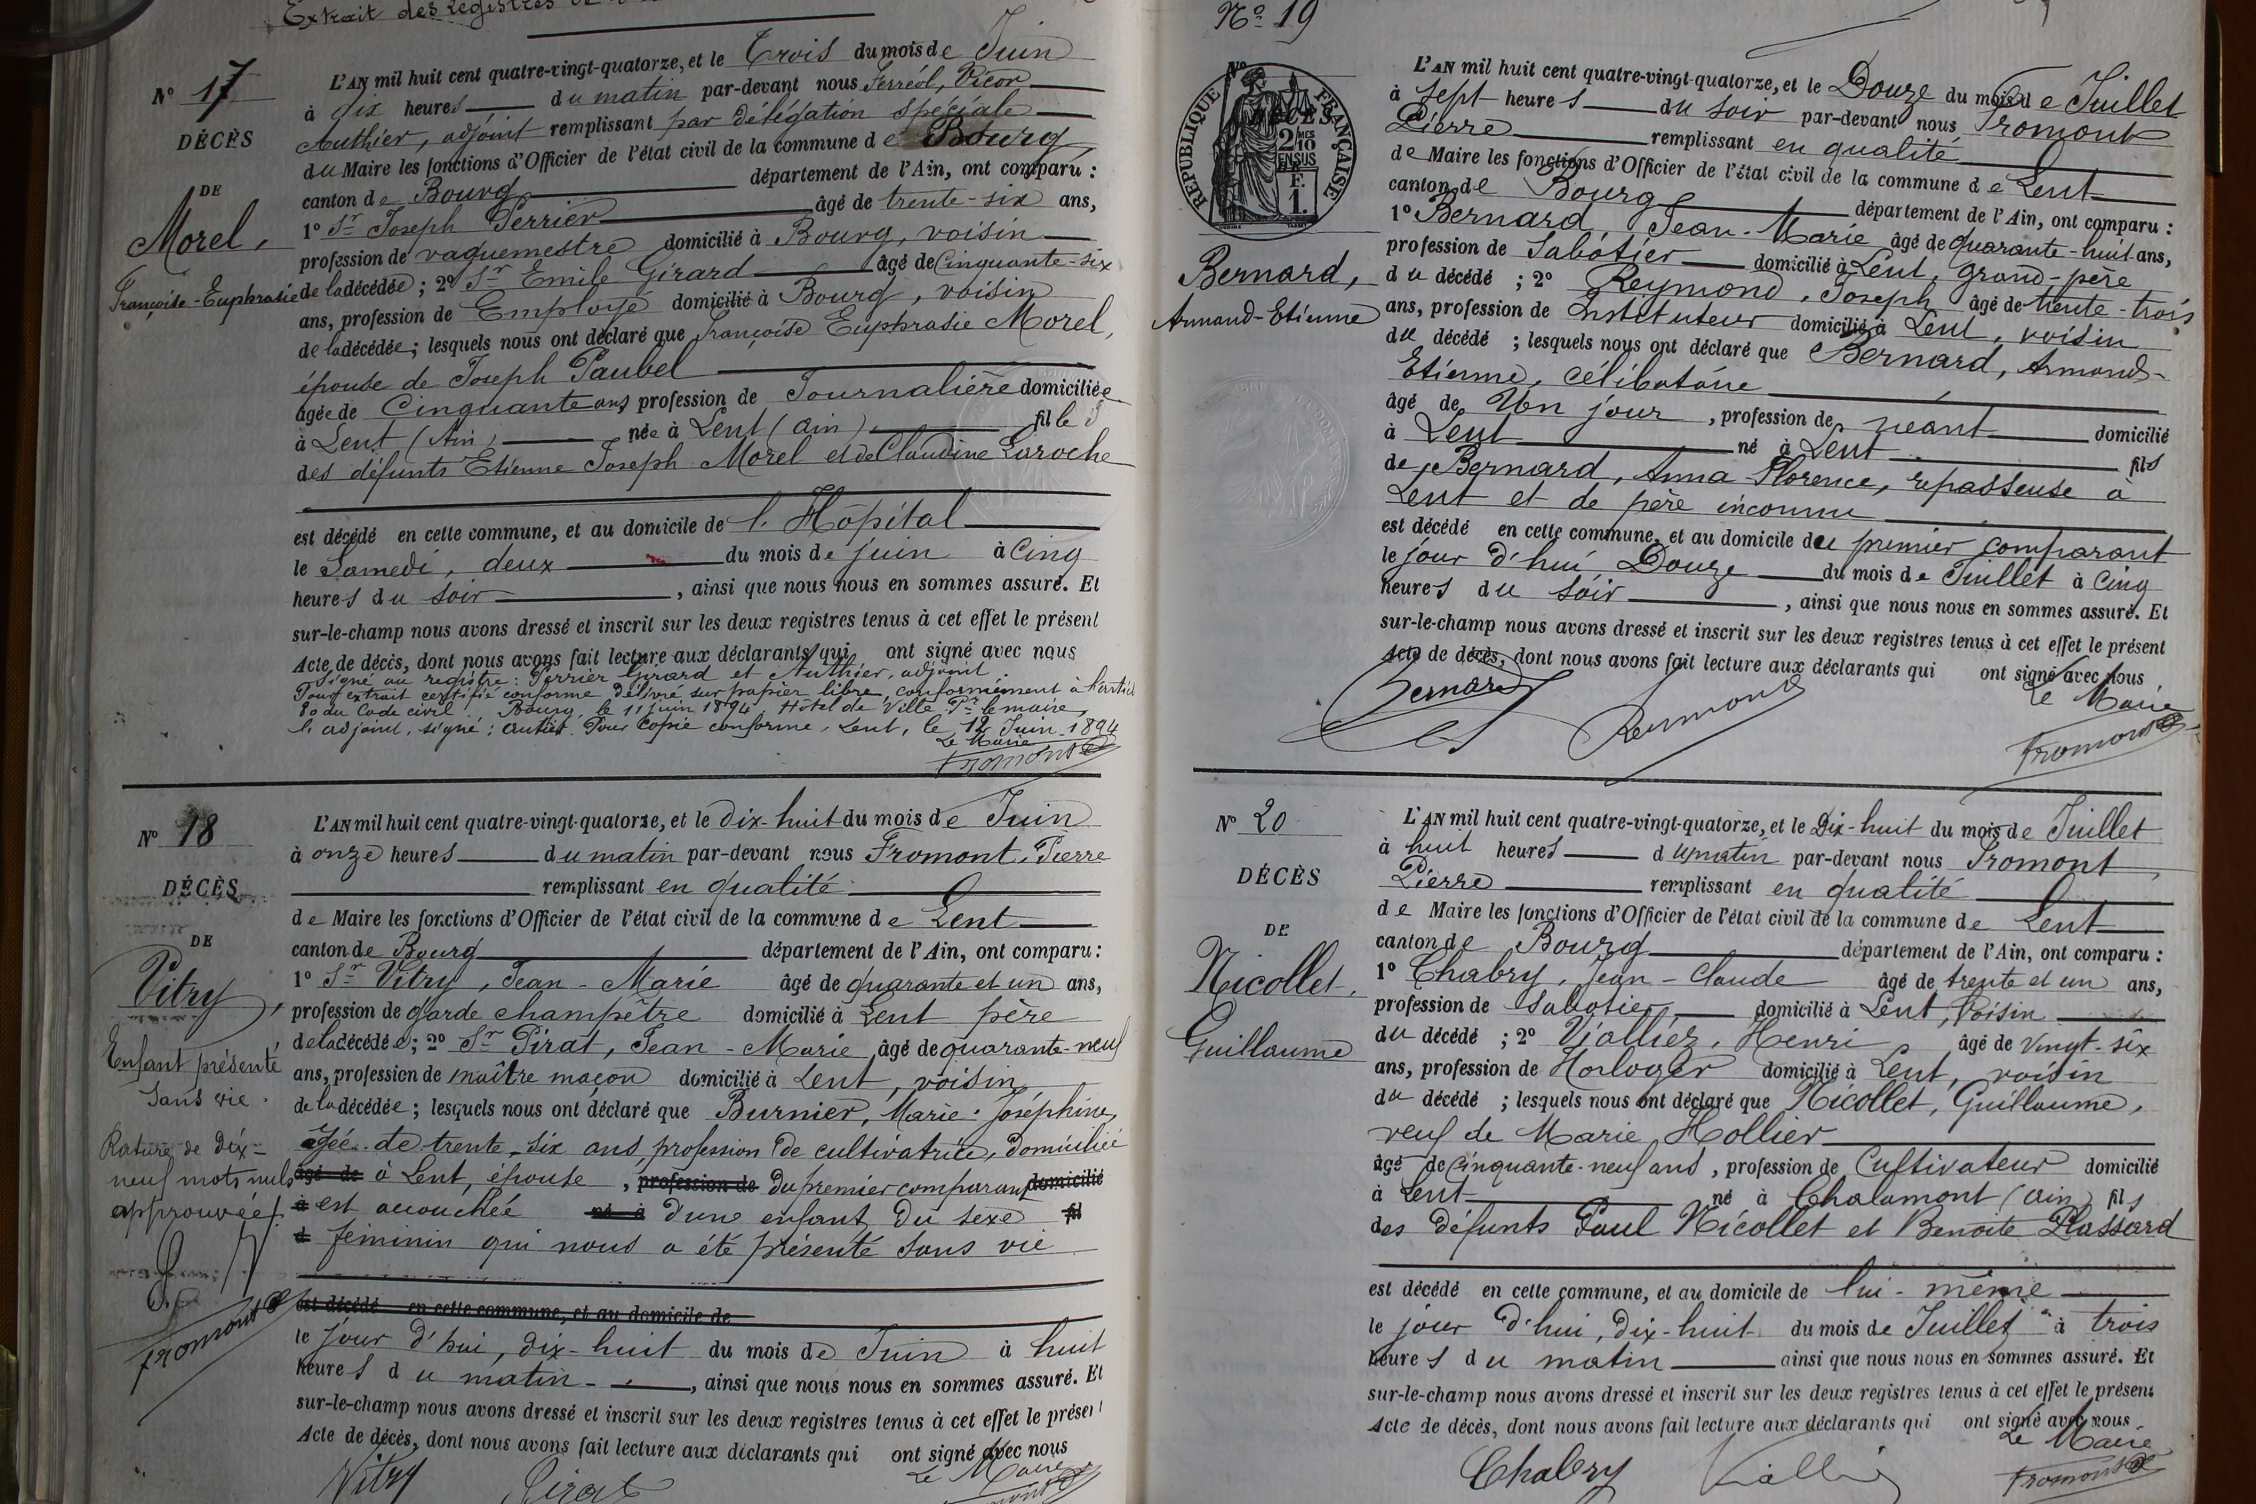 Extrait des registres
N° 17
DÉCÈS
DE
Morel,
Françoise-Euphrasie
L'AN mil huit cent quatre-vingt-quatorze, et le Trois du mois de Juin
à dix heures du matin par-devant nous Ferréol, Victor
Authier, adjoint remplissant par délégation spéciale
du Maire les fonctions d'Officier de l'état civil de la commune de Bourg,
canton de Bourg département de l'Ain, ont comparu :
1° Sr Joseph Perrier âgé de trente-six ans,
profession de vaguemestre domicilié à Bourg, voisin
de la décédée ; 2° Sr Emile Girard âgé de Cinquante-six
ans, profession de Employé domicilié à Bourg, voisin
de la décédée ; lesquels nous ont déclaré que Françoise Euphrasie Morel,
épouse de Joseph Paubel
âgée de Cinquante ans profession de Journalière domiciliée
à Lent (Ain) née à Lent (Ain) fille
des défunts Etienne Joseph Morel et de Claudine Laroche
est décédé en cette commune, et au domicile de l'Hôpital
le Samedi, deux du mois de juin à Cinq
heures du soir, ainsi que nous nous en sommes assuré. Et
sur-le-champ nous avons dressé et inscrit sur les deux registres tenus à cet effet le présent
Acte de décès, dont nous avons fait lecture aux déclarants qui ont signé avec nous
Signé au registre : Perrier Girard et Authier, adjoint
Pour extrait certifié conforme délivré sur papier libre, conformément à l'article
80 du Code civil. Bourg, le 11 juin 1894 Hôtel de Ville Pr le maire,
l'adjoint, signé : Authier Pour Copie conforme, Lent, le 12 Juin 1894
Le Maire
Fromont
N° 18
DÉCÈS
DE
Vitry,
Enfant présenté
sans vie.
Rature de dix-
neuf mots nuls
approuvée.
Fromont
L'AN mil huit cent quatre-vingt-quatorze, et le dix-huit du mois de Juin
à onze heures du matin par-devant nous Fromont, Pierre
remplissant en qualité
de Maire les fonctions d'Officier de l'état civil de la commune de Lent
canton de Bourg département de l'Ain, ont comparu :
1° Sr Vitry, Jean-Marie âgé de quarante et un ans,
profession de garde champêtre domicilié à Lent père
de la décédée ; 2° Sr Pirat, Jean-Marie âgé de quarante-neuf
ans, profession de maître maçon domicilié à Lent, voisin
de la décédée ; lesquels nous ont déclaré que Burnier, Marie-Joséphine,
âgée de trente-six ans, profession de cultivatrice, domiciliée
âgé de à Lent, épouse, profession de du premier comparant domicilié
à est accouchée né à d'une enfant du sexe fil
d féminin qui nous a été présenté sans vie
est décédé en cette commune, et au domicile de
le jour d'hui, dix-huit du mois de Juin à huit
heures du matin, ainsi que nous nous en sommes assuré. Et
sur-le-champ nous avons dressé et inscrit sur les deux registres tenus à cet effet le présent
Acte de décès, dont nous avons fait lecture aux déclarants qui ont signé avec nous
Le Maire
Vitry Pirat
N° 19
N°
DÉCÈS
RÉPUBLIQUE FRANÇAISE
2 MES
10
EN SUS
F.
1.
Bernard,
Armand-Etienne
L'AN mil huit cent quatre-vingt-quatorze, et le Douze du mois de Juillet
à sept heures du soir par-devant nous Fromont
Pierre remplissant en qualité
de Maire les fonctions d'Officier de l'état civil de la commune de Lent
canton de Bourg département de l'Ain, ont comparu :
1° Bernard, Jean-Marie âgé de quarante-huit ans,
profession de Sabotier domicilié à Lent, grand-père
du décédé ; 2° Reymond, Joseph âgé de trente-trois
ans, profession de Instituteur domicilié à Lent, voisin
du décédé ; lesquels nous ont déclaré que Bernard, Armand-
Etienne, célibataire
âgé de Un jour, profession de néant domicilié
à Lent né à Lent fils
de Bernard, Anna Florence, repasseuse à
Lent et de père inconnu
est décédé en cette commune, et au domicile du premier comparant
le jour d'hui Douze du mois de Juillet à Cinq
heures du soir, ainsi que nous nous en sommes assuré. Et
sur-le-champ nous avons dressé et inscrit sur les deux registres tenus à cet effet le présent
Acte de décès, dont nous avons fait lecture aux déclarants qui ont signé avec nous
Le Maire
Bernard Reymond Fromont
N° 20
DÉCÈS
DE
Nicollet,
Guillaume
L'AN mil huit cent quatre-vingt-quatorze, et le Dix-huit du mois de Juillet
à huit heures du matin par-devant nous Fromont,
Pierre remplissant en qualité
de Maire les fonctions d'Officier de l'état civil de la commune de Lent
canton de Bourg département de l'Ain, ont comparu :
1° Chabry, Jean-Claude âgé de trente et un ans,
profession de Sabotier domicilié à Lent, Voisin
du décédé ; 2° Viallier, Henri âgé de vingt-six
ans, profession de Horloger domicilié à Lent, voisin
du décédé ; lesquels nous ont déclaré que Nicollet, Guillaume,
veuf de Marie Hollier
âgé de Cinquante-neuf ans, profession de Cultivateur domicilié
à Lent né à Chalamont (Ain) fils
des défunts Paul Nicollet et Benoite Plassard
est décédé en cette commune, et au domicile de lui-même
le jour d'hui, dix-huit du mois de Juillet à trois
heures du matin ainsi que nous nous en sommes assuré. Et
sur-le-champ nous avons dressé et inscrit sur les deux registres tenus à cet effet le présent
Acte de décès, dont nous avons fait lecture aux déclarants qui ont signé avec nous
Le Maire
Chabry Viallier Fromont